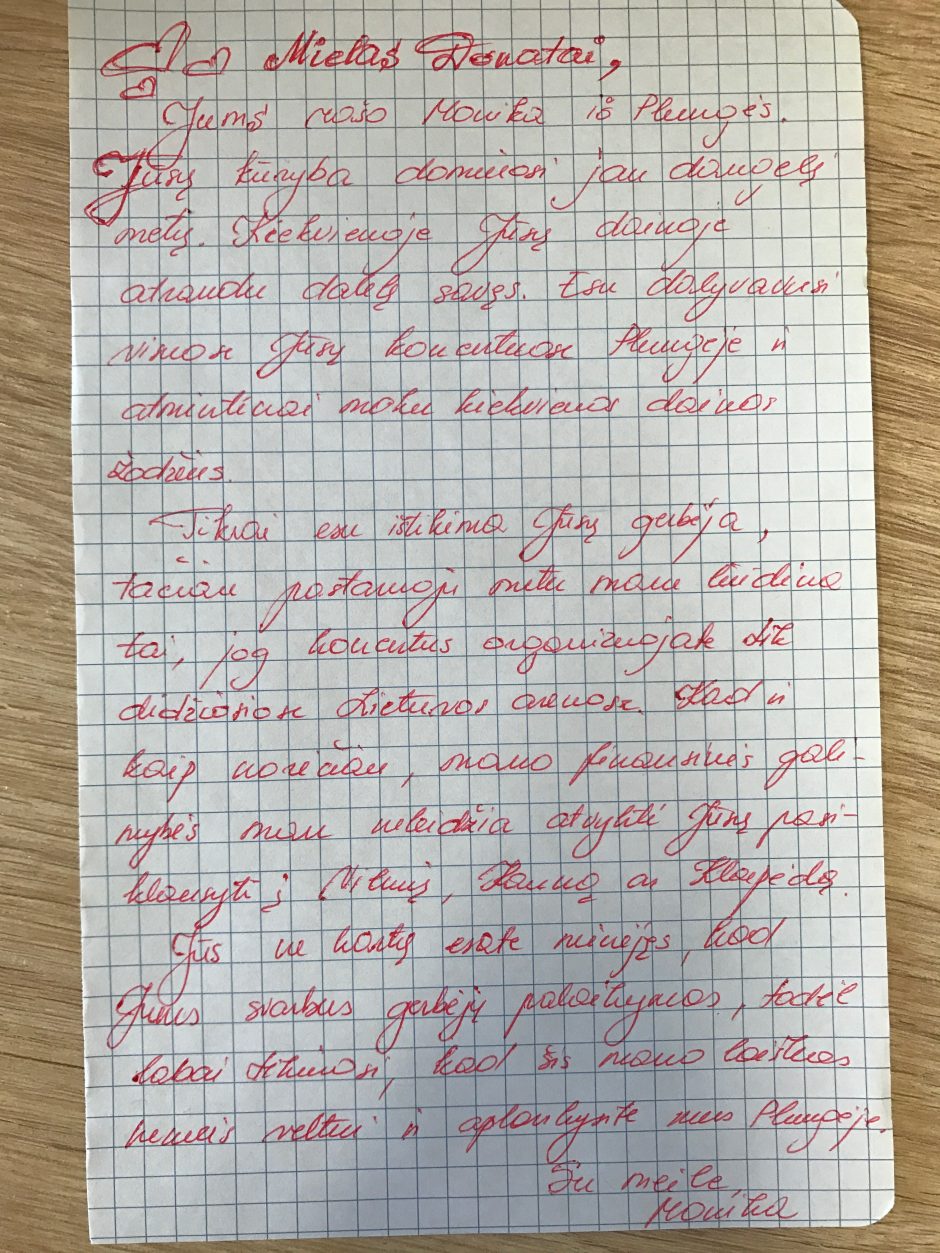 Mielas Donatai,
Jums rašo Monika iš Plungės.
Jūsų kūryba domiuosi jau daugelį
metų. Kiekvienoje Jūsų dainoje
atrandu dalelę savęs. Esu dalyvavusi
visuose Jūsų koncertuose Plungėje ir
atmintinai moku kiekvienos dainos
žodžius.
Tikrai esu ištikima Jūsų gerbėja,
tačiau pastaruoju metu mane liūdina
tai, jog koncertus organizuojate tik
didžiosiose Lietuvos arenose. Kad ir
kaip norėčiau, mano finansinės gali-
mybės man neleidžia atvykti Jūsų pasi-
klausyti į Vilnių, Kauną ar Klaipėdą.
Jūs ne kartą esate minėjęs, kad
Jums svarbus gerbėjų palaikymas, todėl
labai tikiuosi, kad šis mano laiškas
nenueis veltui ir aplankysite mus Plungėje.
Su meile,
Monika